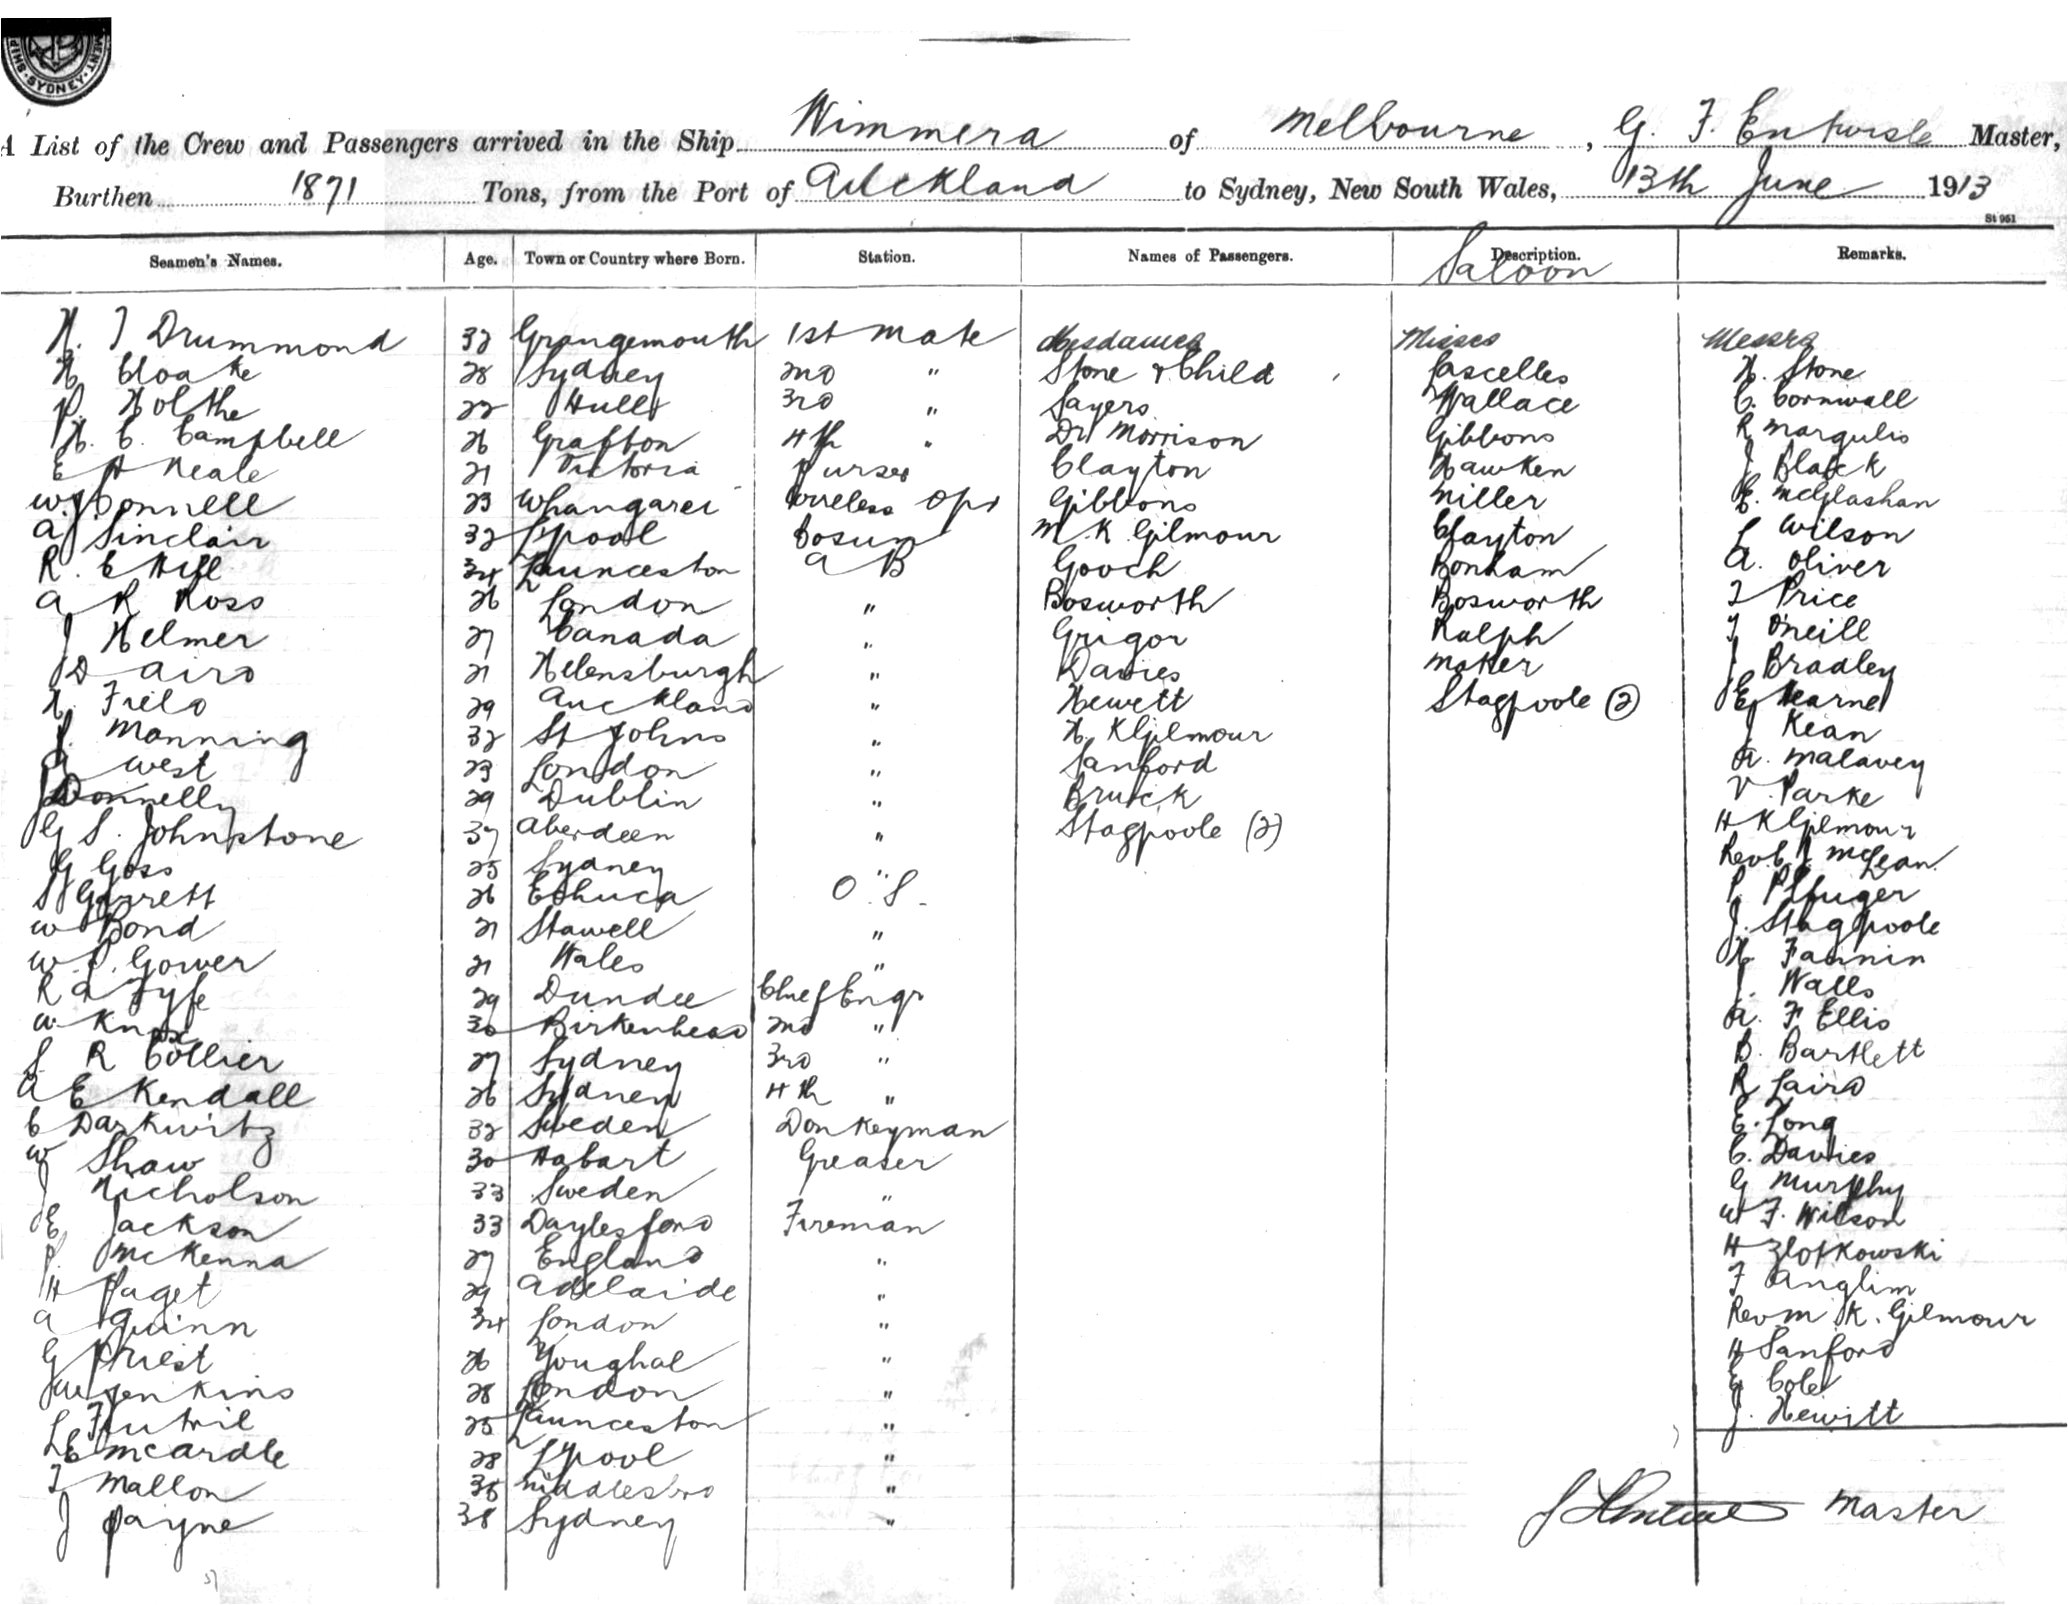 SHIP · SYDNEY · MENT
A List of the Crew and Passengers arrived in the Ship Wimmera of Melbourne, G. F. Entwisle Master,
Burthen 1871 Tons, from the Port of Auckland to Sydney, New South Wales, 13th June 1913
St 951
Seamen's Names. Age. Town or Country where Born. Station. Names of Passengers. Description. Remarks.
Saloon
H. T Drummond 32 Grangemouth 1st Mate Mesdames Misses Messrs
H Cloake 28 Sydney 2nd " Stone & Child Lascelles H. Stone
P. Holthe 22 Hull 3rd " Sayers Wallace C. Cornwall
H. C. Campbell 26 Grafton 4th " Dr Morrison Gibbons R Margulis
E A Neale 21 Victoria Purser Clayton Hawken J Black
W. J. Connell 23 Whangarei Wireless Opr Gibbons Miller E. McGlashan
A Sinclair 32 L'pool Bosun M. K Gilmour Clayton L Wilson
R. E Hill 34 Launceston A B Gooch Bonham A. Oliver
A R Ross 26 London " Bosworth Bosworth T Price
J Helmer 27 Canada " Grigor Ralph T O'Neill
D Aird 21 Helensburgh " Davies Moker J Bradley
H. Field 29 Auckland " Hewett Stagpoole (2) E Hearne
J. Manning 32 St Johns " H. K Gilmour J Kean
A West 23 London " Sanford A. Malavey
J Donnelly 29 Dublin " Bruck V. Parke
G S. Johnstone 37 Aberdeen " Stagpoole (2) H K Gilmour
G Goss 25 Sydney " Rev C. J. McLean
S Garrett 26 Echuca O. S. P. Pfluger
W Bond 21 Stawell " J. Stagpoole
W. P. Gower 21 Wales " H. Fannin
R A Fyfe 29 Dundee Chief Engr J. Walls
W. Knox 30 Birkenhead 2nd " A. F Ellis
S. R Collier 27 Sydney 3rd " B. Bartlett
A E Kendall 26 Sydney 4th " R Laird
C Darkwitz 32 Sweden Donkeyman E. Long
W Shaw 30 Hobart Greaser C. Davies
J Nicholson 33 Sweden " G Murphy
E Jackson 33 Daylesford Fireman W F. Wilson
P. McKenna 27 England " H Zlotkowski
H Paget 29 Adelaide " F Anglim
A Quinn 34 London " Rev M. K. Gilmour
G Priest 26 Youghal " H Sanford
W Jenkins 28 London " E Cole
L Futril 25 Launceston " J. Hewitt
E McArdle 28 L'pool "
T Mallon 35 Middlesbro "
J Payne 38 Sydney " Master